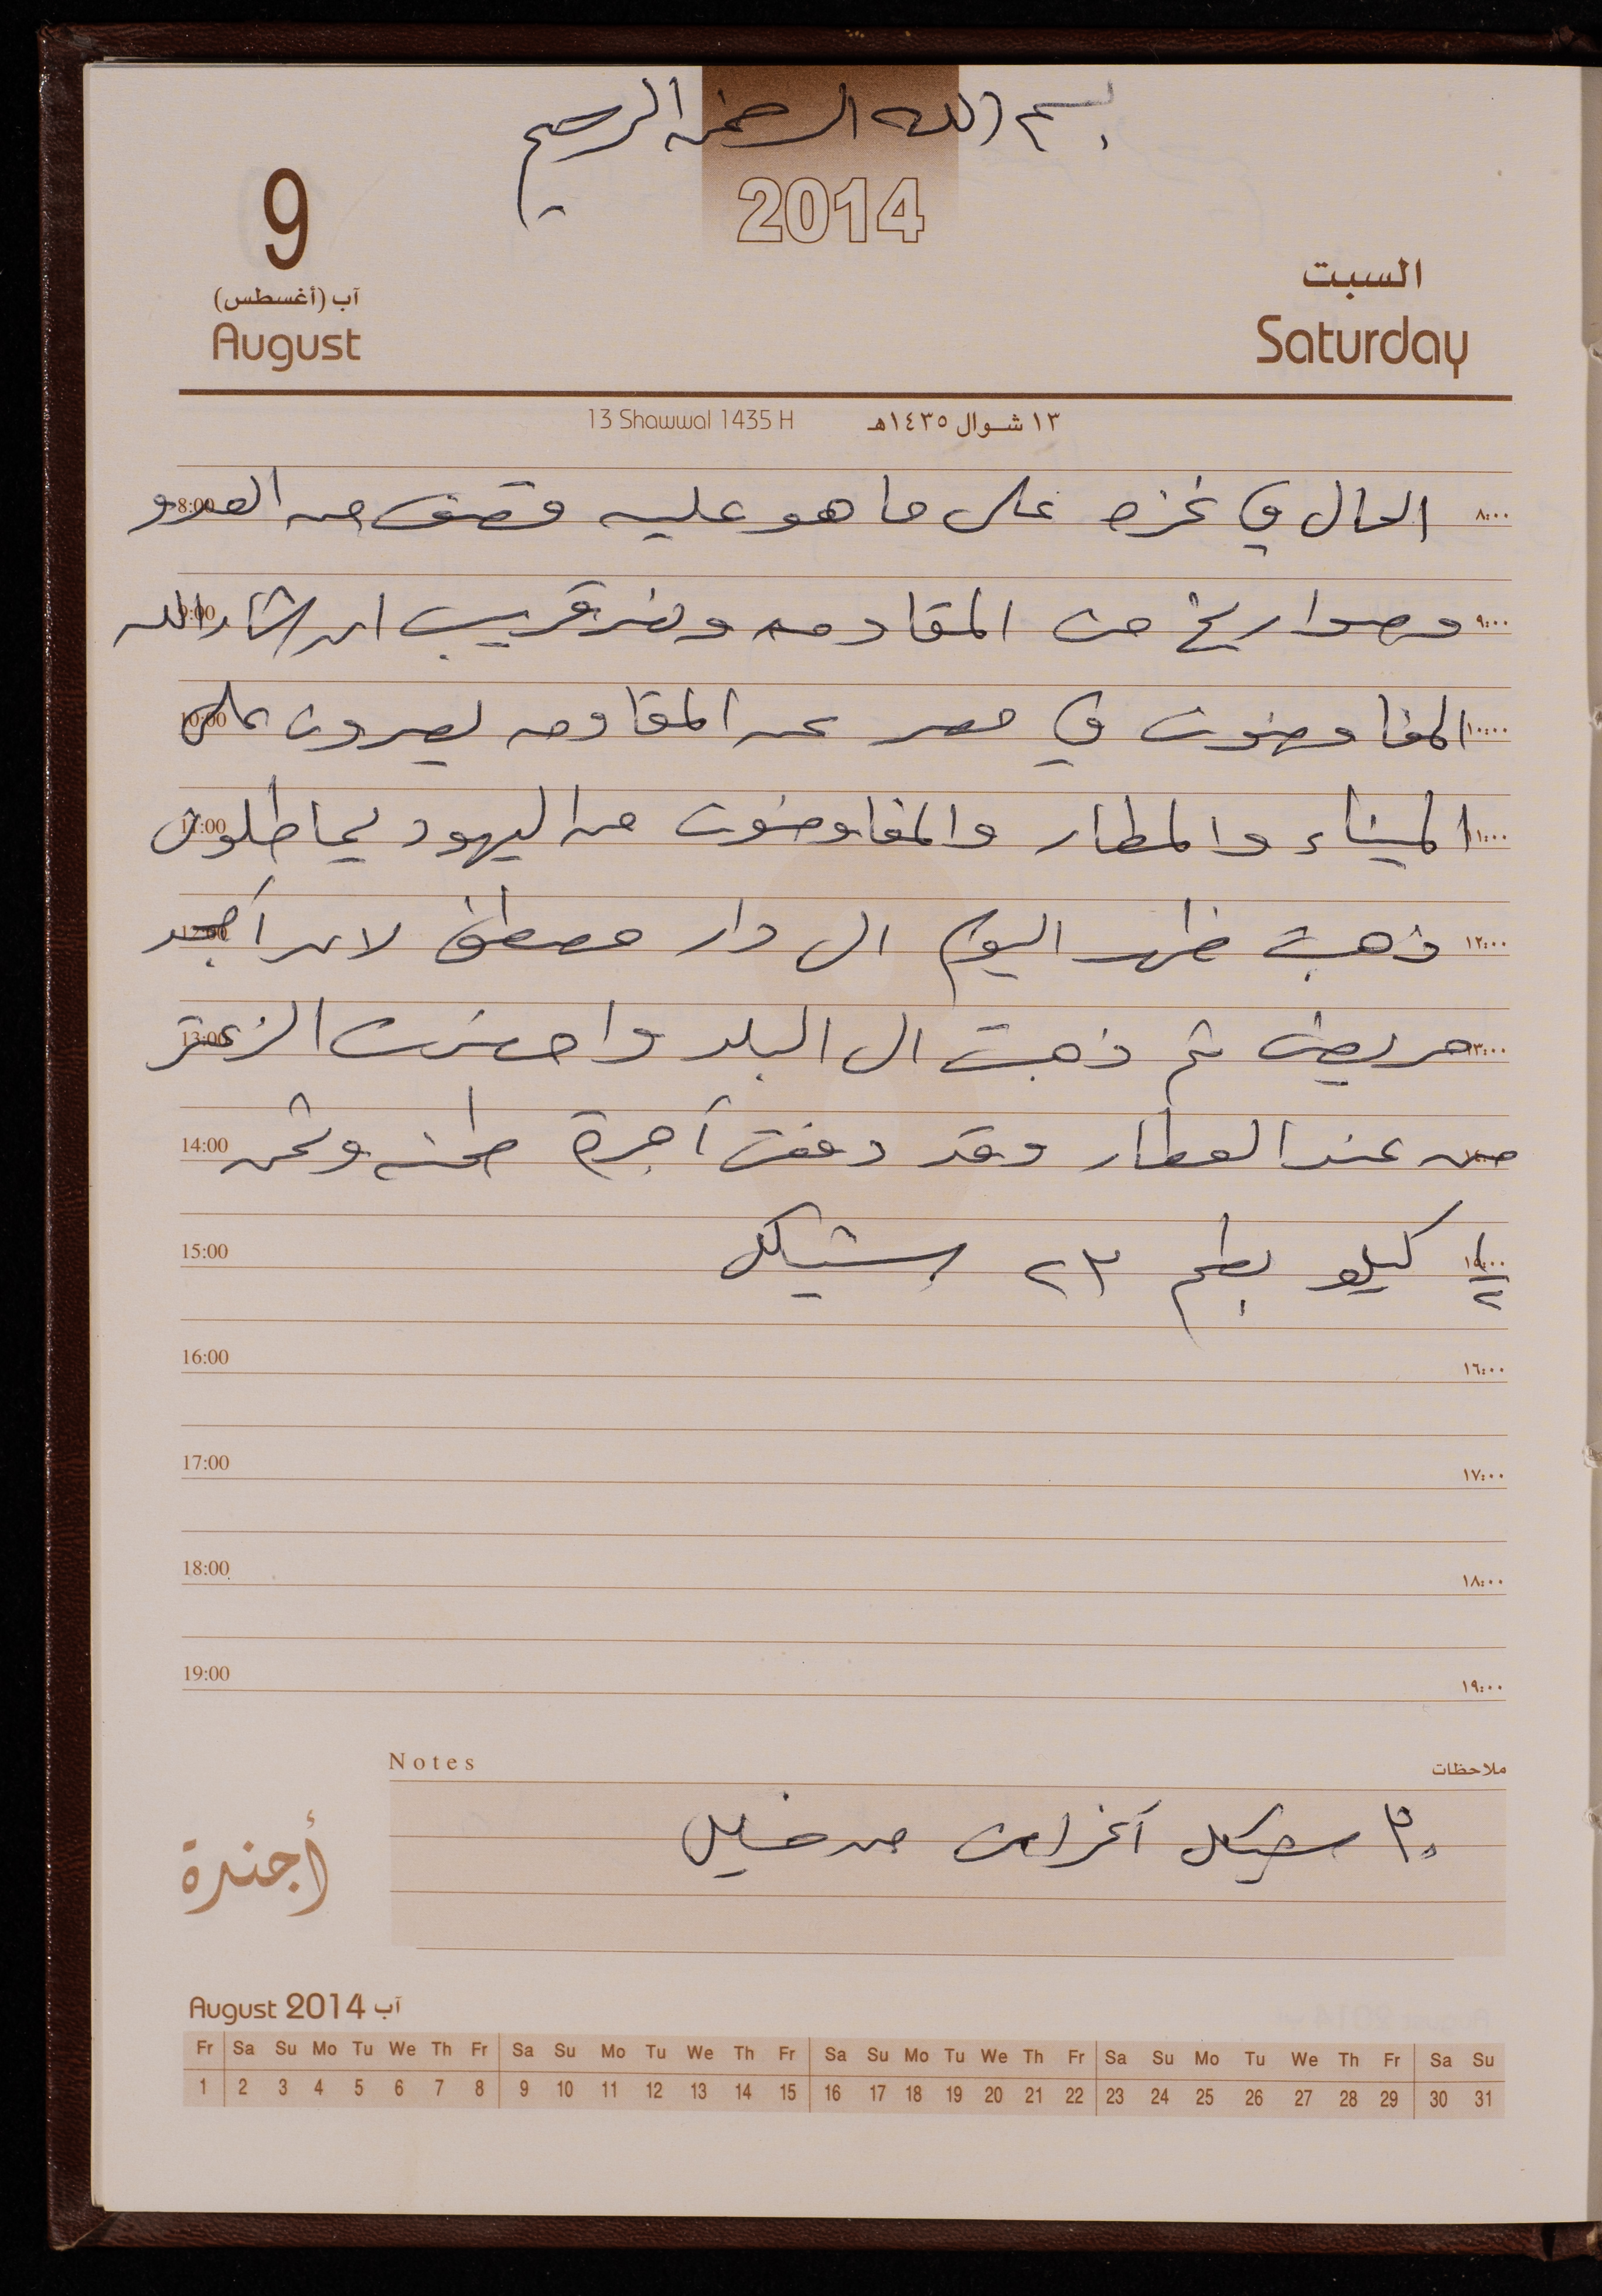 بسم الله الرحمن الرحيم
2014
9
آب (أغسطس)
August
السبت
Saturday
13 Shawwal 1435 H ١٣ شوال ١٤٣٥هـ
8:00 الحال في غزه على ما هو عليه قصف من العدو ٨:٠٠
9:00 وصواريخ من المقاومه ونصر قريب ان شاء الله ٩:٠٠
10:00 المفاوضون في مصر عن المقاومه يصرون على ١٠:٠٠
11:00 الميناء والمطار والمفاوضون من اليهود يماطلون ١١:٠٠
12:00 ذهبت ظهر اليوم الى دار مصطفى لان أمجد ١٢:٠٠
13:00 مريض ثم ذهبت الى البلد واحضرت الزعتر ١٣:٠٠
14:00 من عند العطار وقد دفعت أجرة طحنه وثمن
15:00 ١/٢ كيلو بطم ٢٣ شيكل ١٥:٠٠
16:00 ١٦:٠٠
17:00 ١٧:٠٠
18:00 ١٨:٠٠
19:00 ١٩:٠٠
Notes ملاحظات
٣٠ شيكل أغراض من
أجندة
August 2014 آب
Fr Sa Su Mo Tu We Th Fr Sa Su Mo Tu We Th Fr Sa Su Mo Tu We Th Fr Sa Su Mo Tu We Th Fr Sa Su
1 2 3 4 5 6 7 8 9 10 11 12 13 14 15 16 17 18 19 20 21 22 23 24 25 26 27 28 29 30 31